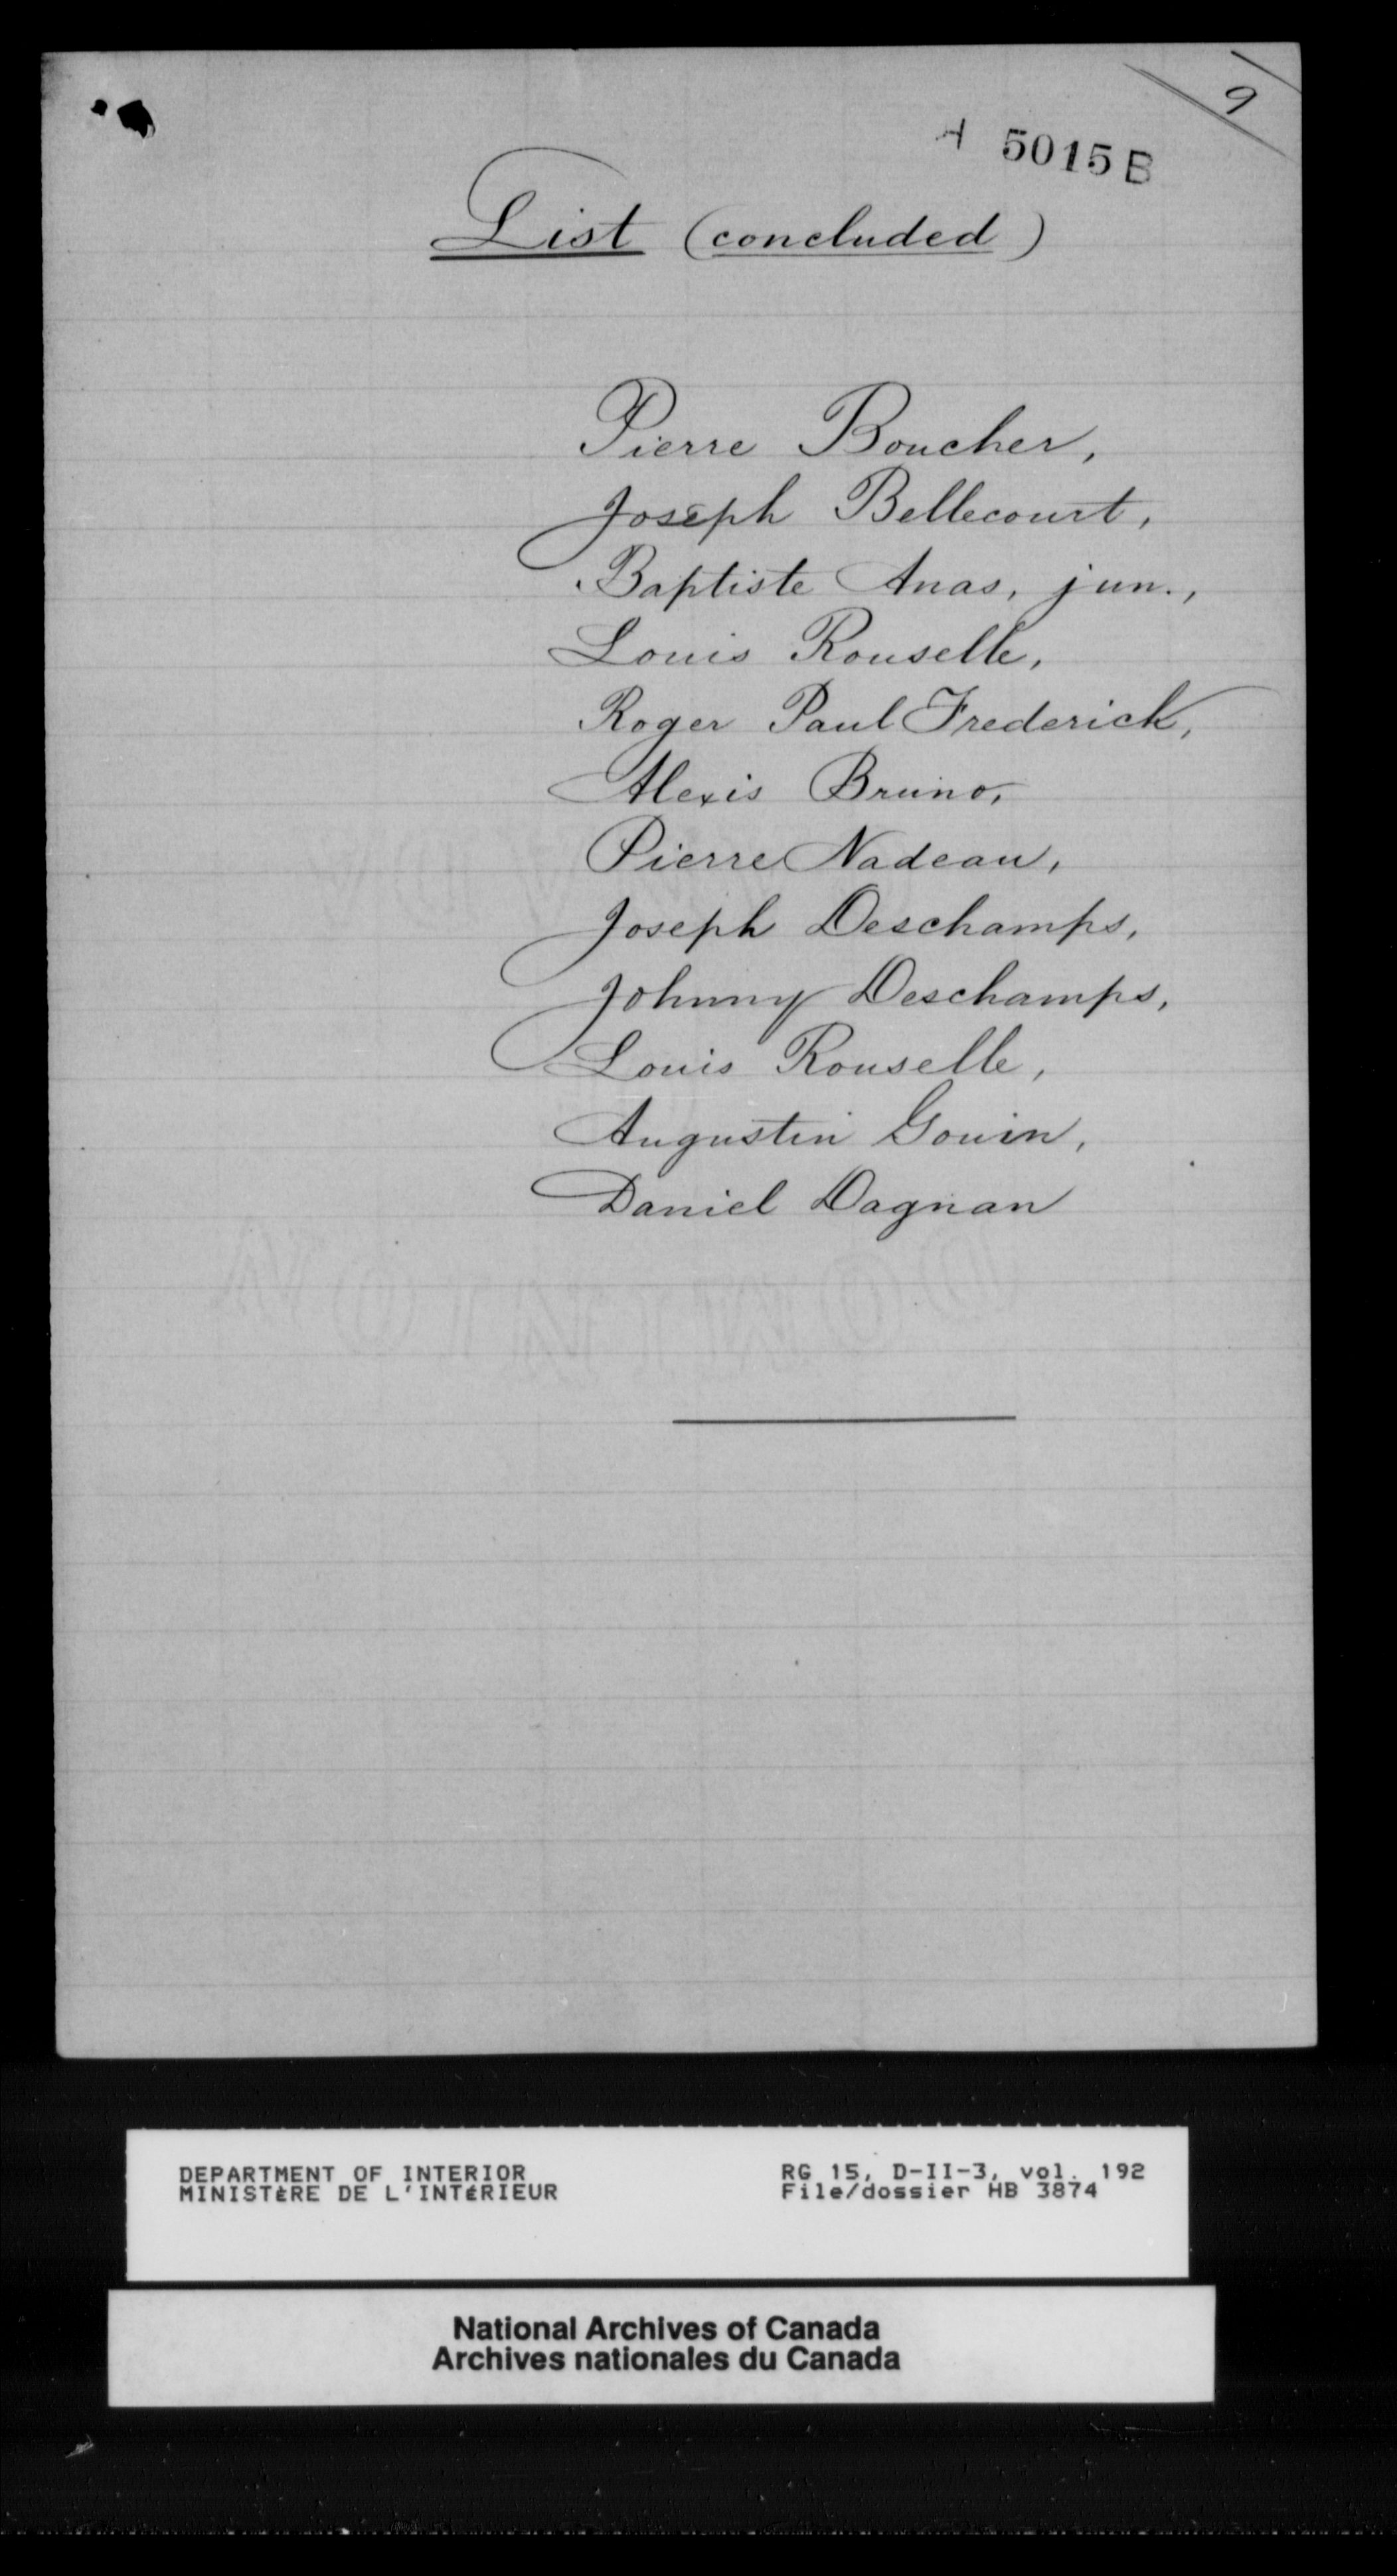 9
H 5015 B
List (concluded)
Pierre Boucher,
Joseph Bellecourt,
Baptiste Anas, jun.,
Louis Rouselle,
Roger Paul Frederick,
Alexis Bruno,
Pierre Nadeau,
Joseph Deschamps,
Johnny Deschamps,
Louis Rouselle,
Augustin Gouin,
Daniel Dagnan
DEPARTMENT OF INTERIOR
MINISTÈRE DE L'INTÉRIEUR
RG 15, D-II-3, vol. 192
File/dossier HB 3874
National Archives of Canada
Archives nationales du Canada